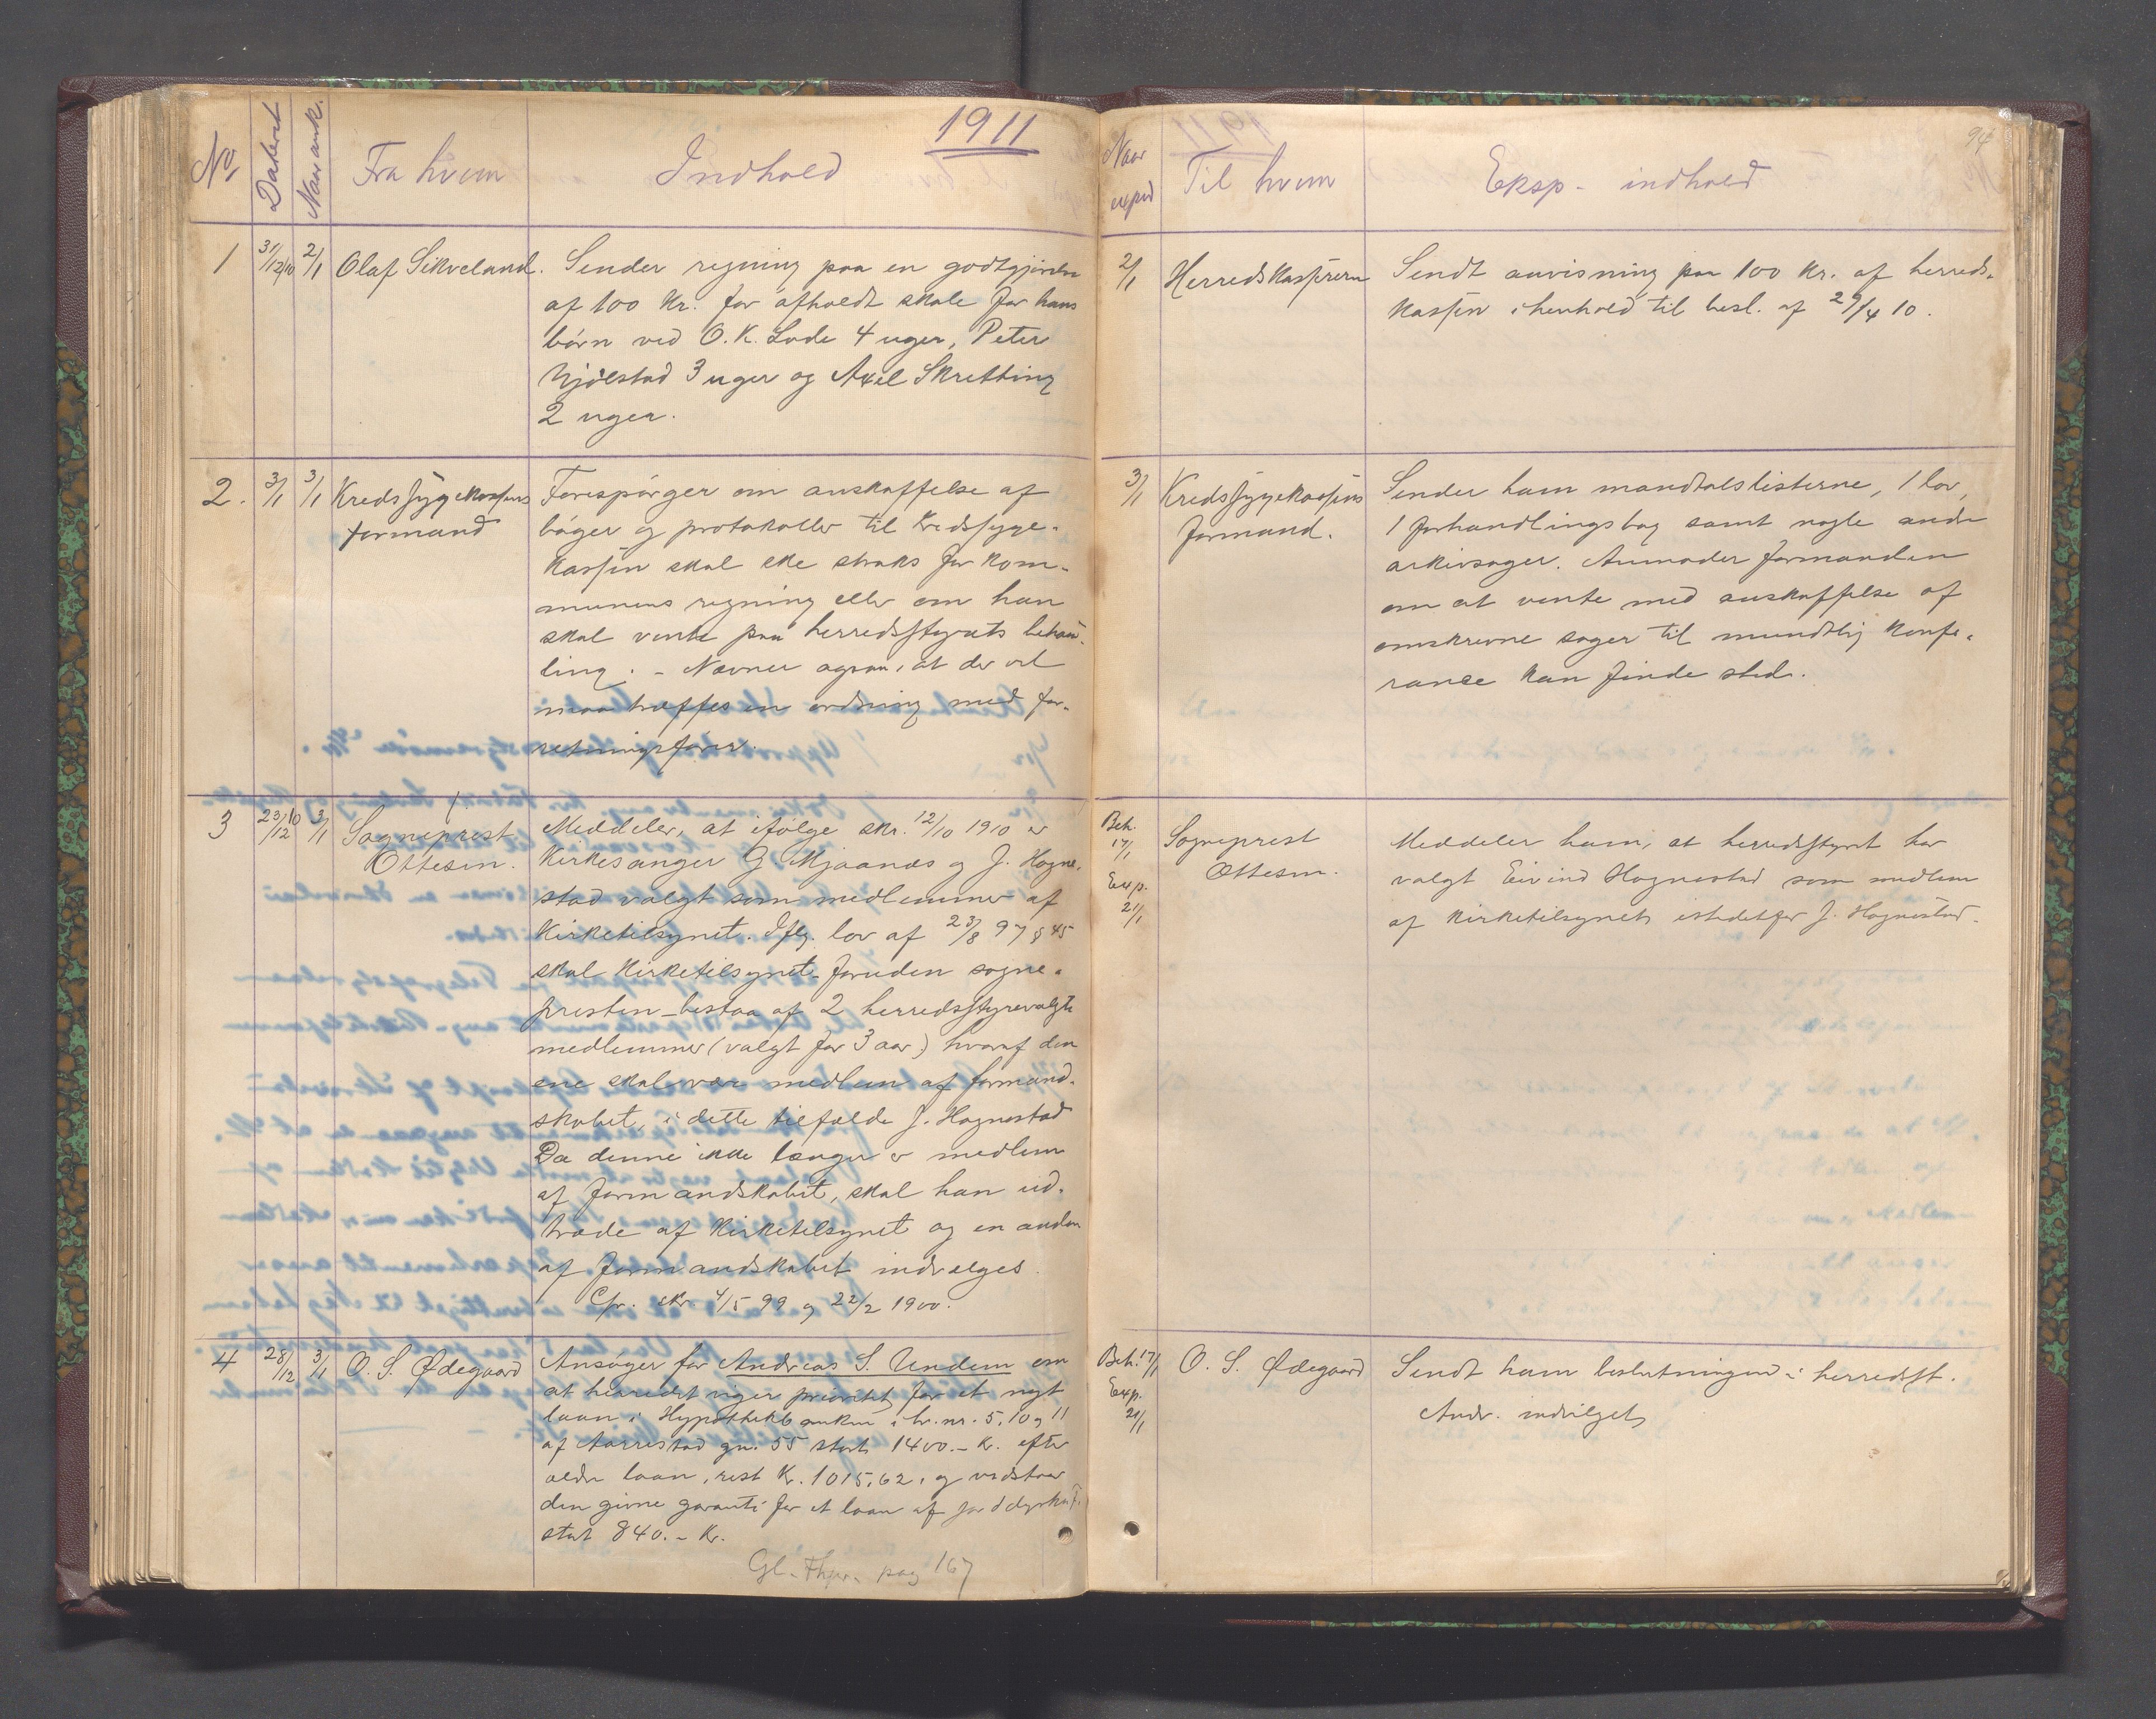 1911
No. Dateret Naar ank. Fra hvem Indhold
1 31/12 10 2/1 Olaf Sikveland. Sender regning paa en godtgjörelse
af 100 Kr. for afholdt skole for hans
börn ved O. K. Lode 4 uger, Peter
Njölstad 3 uger og Axel Skretting
2 uger.
2. 3/1 3/1 Kredssygekassens
formand
Forespörger om anskaffelse af
böger og protokoller til kredssyge-
kassen skal ske straks for kom-
munens regning eller om han
skal vente paa herredsstyrets behan-
ling. - Nævner ogsaa, at der vel
maa træffes en ordning med for-
retningsförer.
3 23/12 10 3/1 Sogneprest
Ottesen.
Meddeler, at ifölge skr. 12/10 1910 er
Kirkesanger G Mjaanes og J. Hogne-
stad valgt som medlemmer af
Kirketilsynet. Iflg. lov af 23/8 97 § 45
skal Kirketilsynet - foruden sogne-
presten - bestaa af 2 herredsstyrevalgte
medlemmer (valgt for 3 aar) hvoraf den
ene skal være medlem af formand-
skabet, i dette tilfælde J. Hognestad
Da denne ikke længer er medlem
af formandskabet, skal han ud-
træde af Kirketilsynet og en anden
af formandskabet indvælges.
Cfr. skr. 4/5 99 og 22/2 1900.
4 28/12 3/1 O. S. Ödegaard Ansöger for Andreas S. Undem om
at herredet viger prioritet for et nyt
laan i Hypothekbanken i br. nr. 5, 10 og 11
af Aarrestad gn. 55 stort 1400.- Kr. efter
ældre laan, rest Kr. 1015,62, og vedstaar
den givne garanti for et laan af jorddyrkn.f.
stort 840.- Kr.
Gl. Fhpr. pag 167
94
Naar exped Til hvem Eksp - indhold
2/1 Herredskasserern Sendt anvisning paa 100 Kr. af herreds-
kassen i henhold til besl. af 29/4 10.
3/1 Kredssygekassens
formand.
Sender ham mandtalslisterne, 1 lov,
1 forhandlingsbog samt nogle andre
arkivsager. Anmoder formanden
om at vente med anskaffelse af
omskrevne sager til mundtlig konfe-
rance kan finde sted.
Beh.
17/1
Exp.
21/1
Sogneprest
Ottesen.
Meddeler ham, at herredsstyret har
valgt Eivind Hognestad som medlem
af kirketilsynet istedetfor J. Hognestad.
Beh. 17/1
Exp.
21/1
O. S. Ödegaard Sendt ham beslutningen i herredsst.
Andr. indvilget